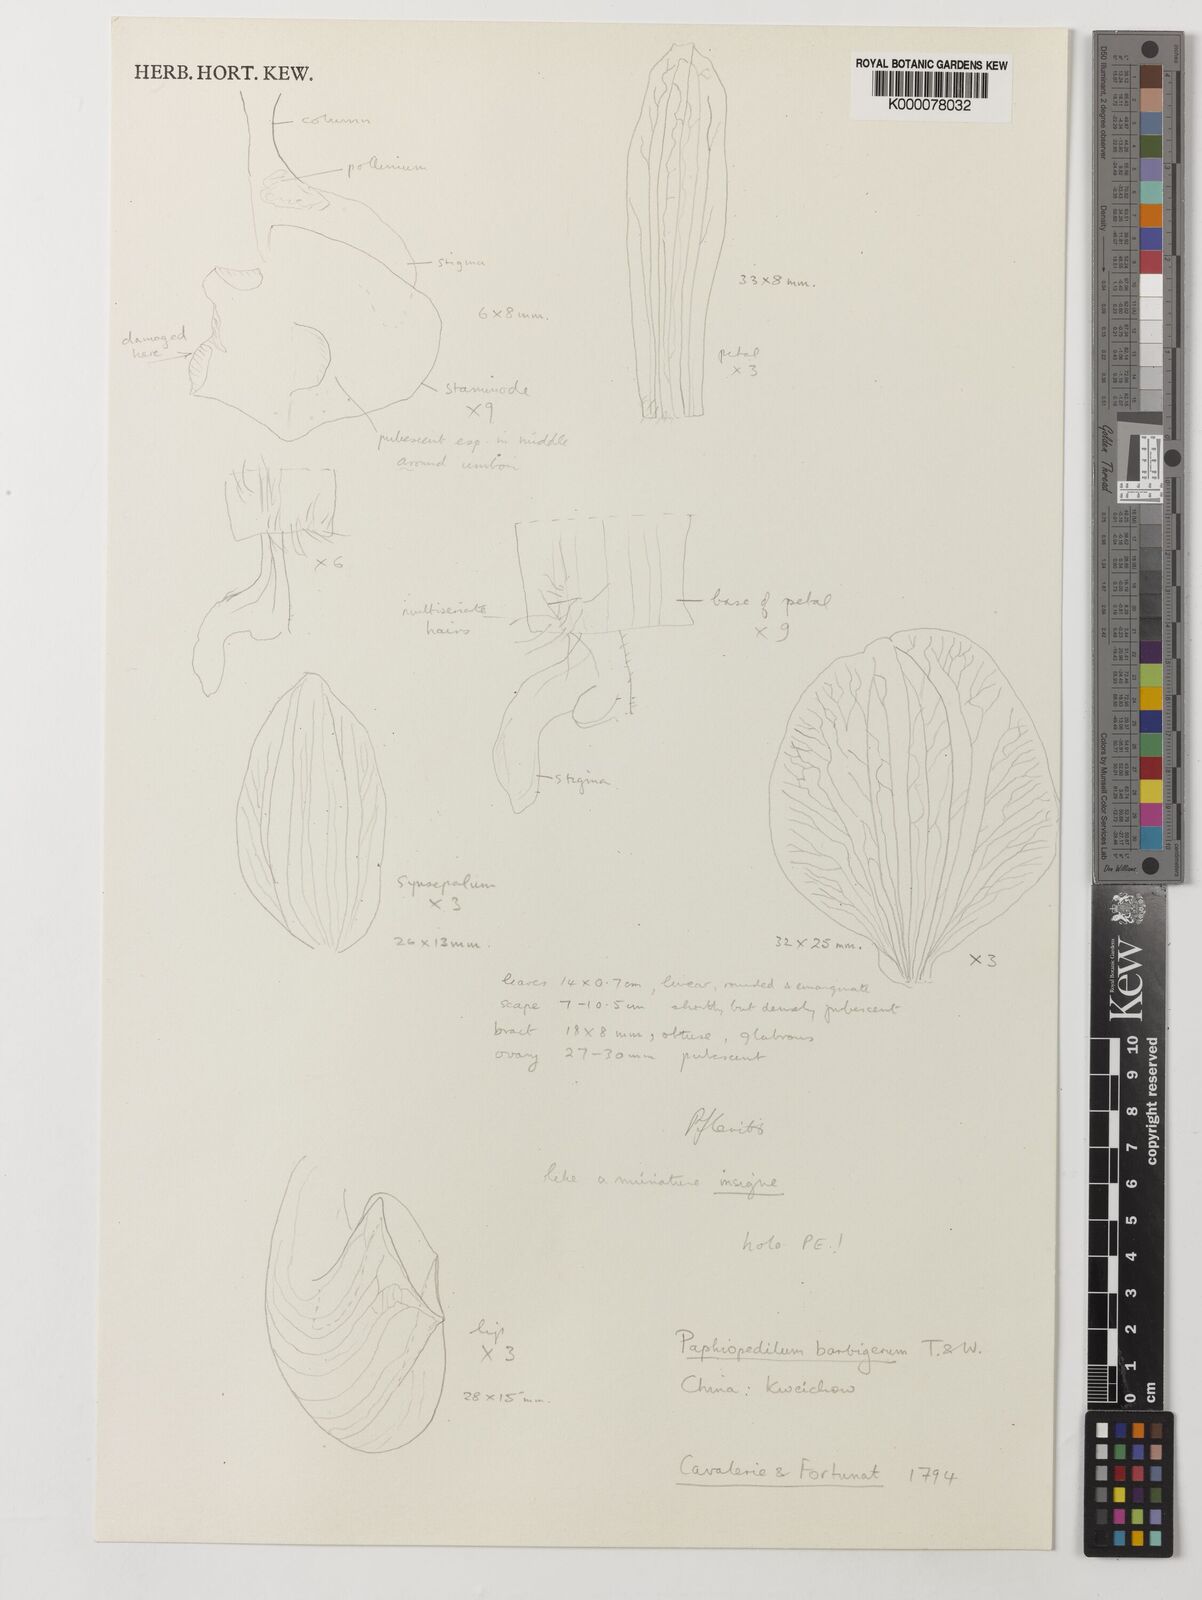 HERB. HORT. KEW.
ROYAL BOTANIC GARDENS KEW
K000078032
column
pollinium
stigma
6 x 8 mm.
damaged
here
staminode
x 9
pubescent esp. in middle
around umbo
33 x 8 mm.
petal
x 3
x 6
multiseriate
hairs
base of petal
x 9
stigma
synsepalum
x 3
26 x 13 mm.
32 x 25 mm.
x 3
leaves 14 x 0.7 cm, linear, rounded & emarginate
scape 7-10.5 cm shortly but densely pubescent
bract 18 x 8 mm, obtuse, glabrous
ovary 27-30 mm pubescent
like a miniature insigne
holo PE.!
lip
x 3
28 x 15 mm.
Paphiopedilum barbigerum T. & W.
China: Kweichow
Cavalerie & Fortunat 1794
Golden Thread
Colors by Munsell Color Services Lab
Don Williams
Kew
Royal Botanic Gardens
copyright reserved
0 1 2 3 4 5 6 7 8 9 10
cm